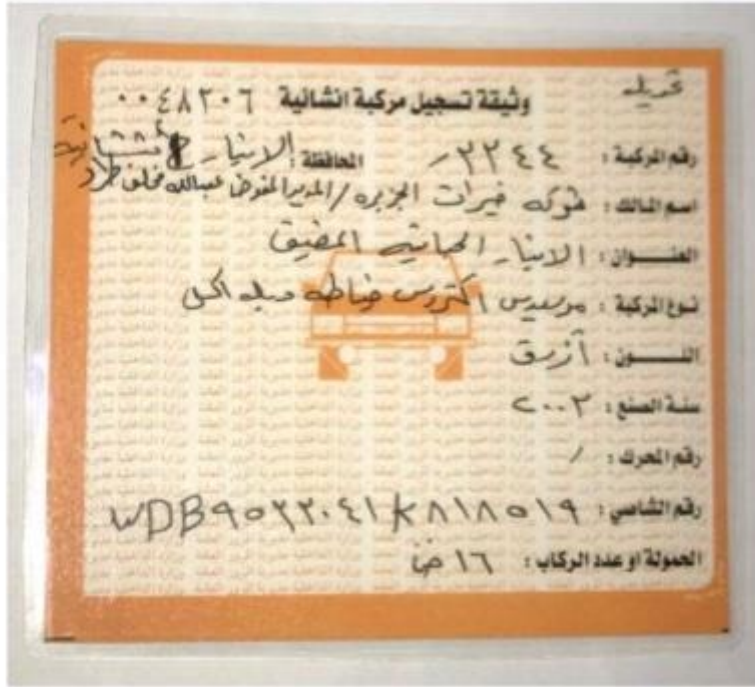 وثيقة تسجيل مركبة انشائية ٠٠٤٨٢٠٦
رقم المركبة : ٢٢٤٤ المحافظة : الانبار
اسم المالك : خيرات الجزيره / المدير المفوض عبدالله مخلف
العنــوان : الانبار المضيق
نوع المركبة : مرسيدس اكتروس
اللــون : أزرق
سنة الصنع : ٢٠٠٣
رقم المحرك : /
رقم الشاصي : WDB٩٥٢٢٠٤١K٨١٨٥١٩
الحمولة او عدد الركاب : ١٦